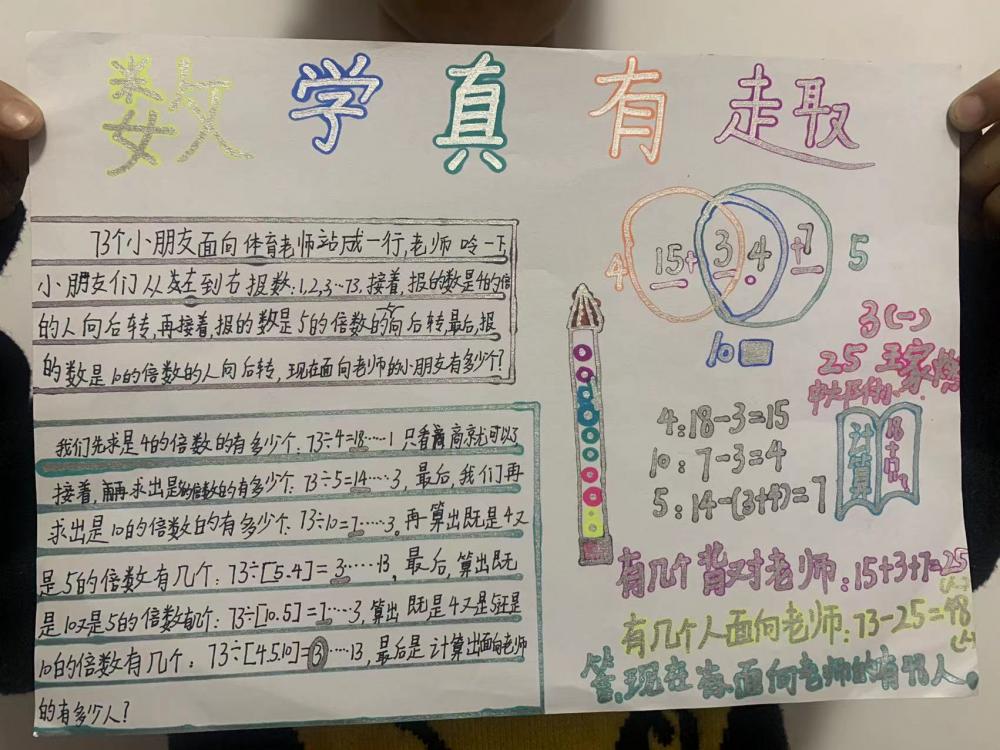 数学真有趣
73个小朋友面向体育老师站成一行,老师 哈一下
小朋友们从左到右报数:1,2,3…73.接着,报的数是4的倍
的人向后转,再接着,报的数是5的倍数的向后转,最后,报
的数是10的倍数的人向后转,现在面向老师的小朋友有多少个?
我们先求是4的倍数的有多少个:73÷4=18……1 只看商就可以了
接着,再求出是5的倍数的有多少个:73÷5=14…3,最后,我们再
求出是10的倍数的有多少个:73÷10=7……3。再算出既是4又
是5的倍数有几个:73÷[5.4]=3……13,最后,算出既
是10又是5的倍数有几个:73÷[10.5]=7……3,算出 既是4又是5还是
10的倍数有几个:73÷[4.5.10]=3……13,最后是计算出面向老师
的有多少人?
4 15+ 3 4 +7 5
10
3(一)
25 王家
计算
4:18-3=15
10:7-3=4
5:14-(3+4)=7
有几个背对老师:15+3+7=25
有几个人面向老师:73-25=48
答:现在 面向老师的有48人。